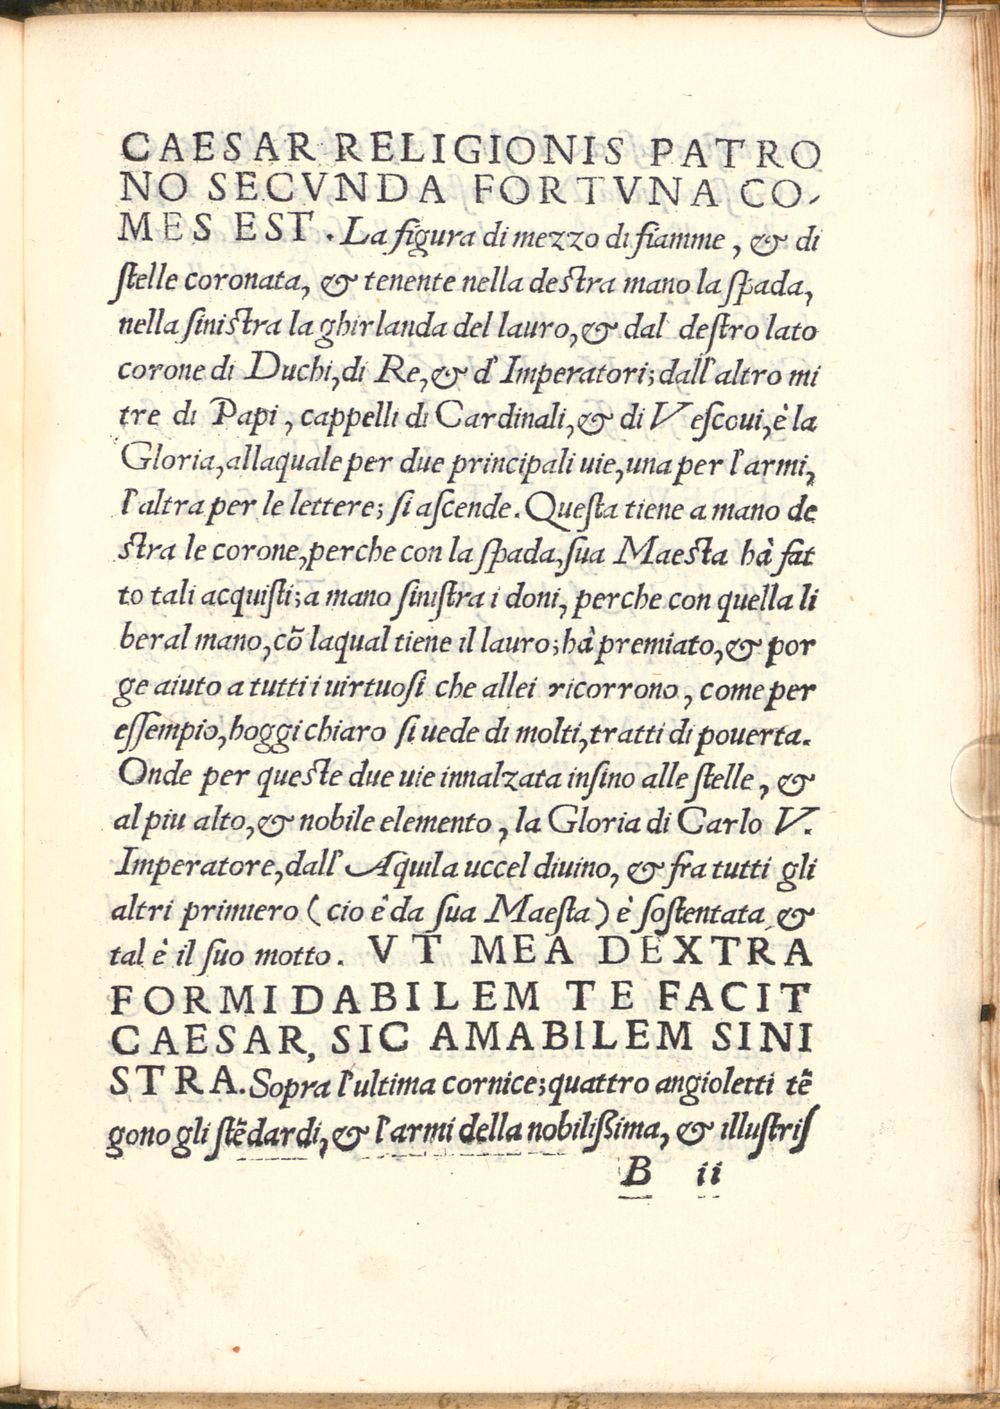 CAESAR RELIGIONIS PATRO
NO SECVNDA FORTVNA CO-
MES EST. La figura di mezzo di fiamme, & di
ſtelle coronata, & tenente nella deſtra mano la ſpada,
nella ſiniſtra la ghirlanda del lauro, & dal deſtro lato
corone di Duchi, di Re, & d'Imperatori; dall'altro mi
tre di Papi, cappelli di Cardinali, & di Veſcoui, è la
Gloria, allaquale per due principali uie, una per l'armi,
l'altra per le lettere; ſi aſcende. Queſta tiene a mano de
ſtra le corone, perche con la ſpada, ſua Maeſta hà fat
to tali acquiſti; a mano ſiniſtra i doni, perche con quella li
beral mano, cõ laqual tiene il lauro; hà premiato, & por
ge aiuto a tutti i uirtuoſi che allei ricorrono, come per
eſſempio, hoggi chiaro ſi uede di molti, tratti di pouerta.
Onde per queſte due uie innalzata inſino alle ſtelle, &
al piu alto, & nobile elemento, la Gloria di Carlo V.
Imperatore, dall'Aquila uccel diuino, & fra tutti gli
altri primiero (cio è da ſua Maeſta) è ſoſtentata &
tal è il ſuo motto. VT MEA DEXTRA
FORMIDABILEM TE FACIT
CAESAR, SIC AMABILEM SINI
STRA. Sopra l'ultima cornice; quattro angioletti tẽ
gono gli ſtẽdardi, & l'armi della nobiliſſima, & illuſtriſ
B ii